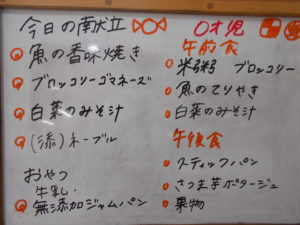 今日の献立
魚の香味焼き
ブロッコリーゴマネーズ
白菜のみそ汁
(添)ネーブル
おやつ
牛乳
無添加ジャムパン
0才児
午前食
米粥 ブロッコリー
魚のてりやき
白菜のみそ汁
午後食
スティックパン
さつま芋ポタージュ
果物